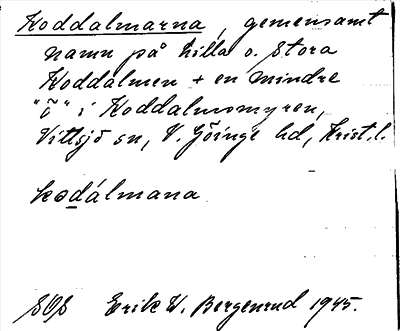 Koddalmarna, gemensamt
namn på Lilla o. Stora
Koddalmen + en mindre
"ö" i Koddalmomyren,
Vittsjö sn, V. Göinge hd, Krist. l.
kodálmana
SOS Erik W. Bergenrud 1945.